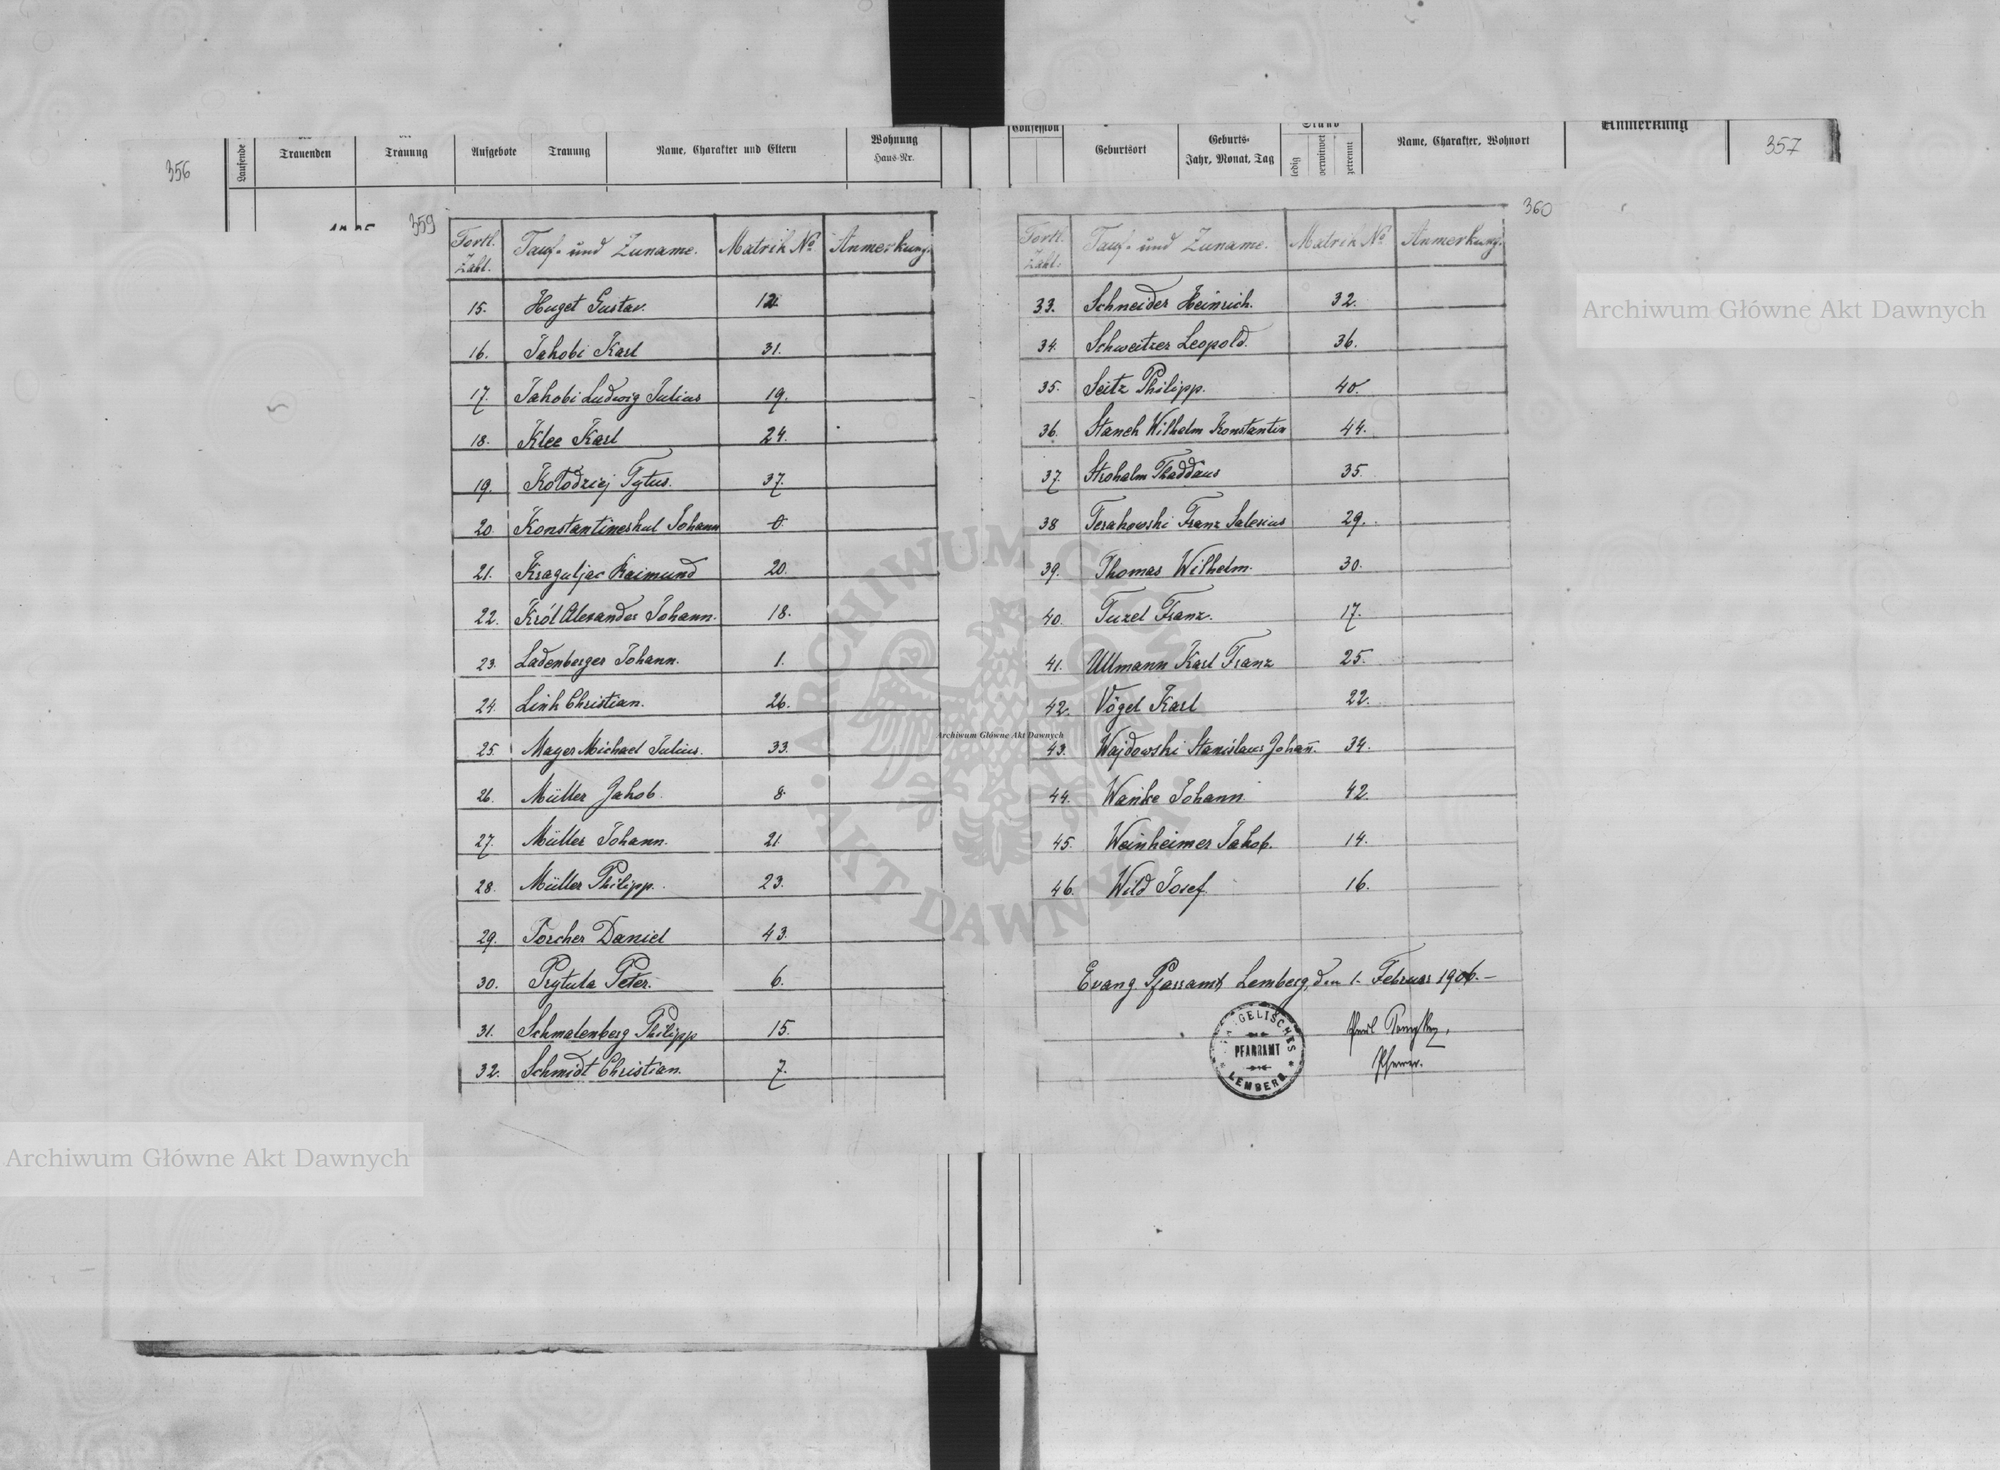 356
Laufende
Trauenden
Trauung
Aufgebote
Trauung
Name, Charakter und Eltern
Wohnung
Haus-Nr.
Confession
Geburtsort
Geburts-
Jahr, Monat, Tag
Stand
ledig
verwitwet
getrennt
Name, Charakter, Wohnort
Anmerkung
357
359
Fortl. Zahl. Tauf- und Zuname. Matrik No Anmerkung.
15. Huget Gustav. 12.
16. Jakobi Karl 31.
17. Jakobi Ludwig Julius 19.
18. Klee Karl 24.
19. Kołodziej Tytus. 37.
20. Konstantineskul Johann
21. Kraguljac Raimund 20.
22. Król Alexander Johann. 18.
23. Ladenberger Johann. 1.
24. Link Christian. 26.
25. Mayer Michael Julius. 33.
26. Müller Jakob. 8.
27. Müller Johann. 21.
28. Müller Philipp. 23.
29. Porcher Daniel 43.
30. Prytula Peter. 6.
31. Schmalenberg Philipp 15.
32. Schmidt Christian. 7.
360
Fortl. Zahl. Tauf- und Zuname. Matrik No Anmerkung.
33. Schneider Heinrich. 32.
34. Schweitzer Leopold. 36.
35. Seitz Philipp. 40.
36. Stanek Wilhelm Konstantin 44.
37. Strohalm Thaddäus 35.
38 Terakowski Franz Salesius 29.
39. Thomas Wilhelm. 30.
40. Tuzel Franz. 17.
41. Ullmann Karl Franz 25.
42. Vögel Karl 22.
43. Wajdowski Stanislaus Johañ. 34.
44. Wanke Johann 42.
45. Weinheimer Jakob. 14.
46. Wild Josef. 16.
Evang. Pfarramt Lemberg, den 1. Februar 1906.—
EVANGELISCHES
PFARRAMT
LEMBERG
Pfarrer.
Archiwum Główne Akt Dawnych
Archiwum Główne Akt Dawnych
Archiwum Główne Akt Dawnych
ARCHIWUM GŁÓWNE
AKT DAWNYCH